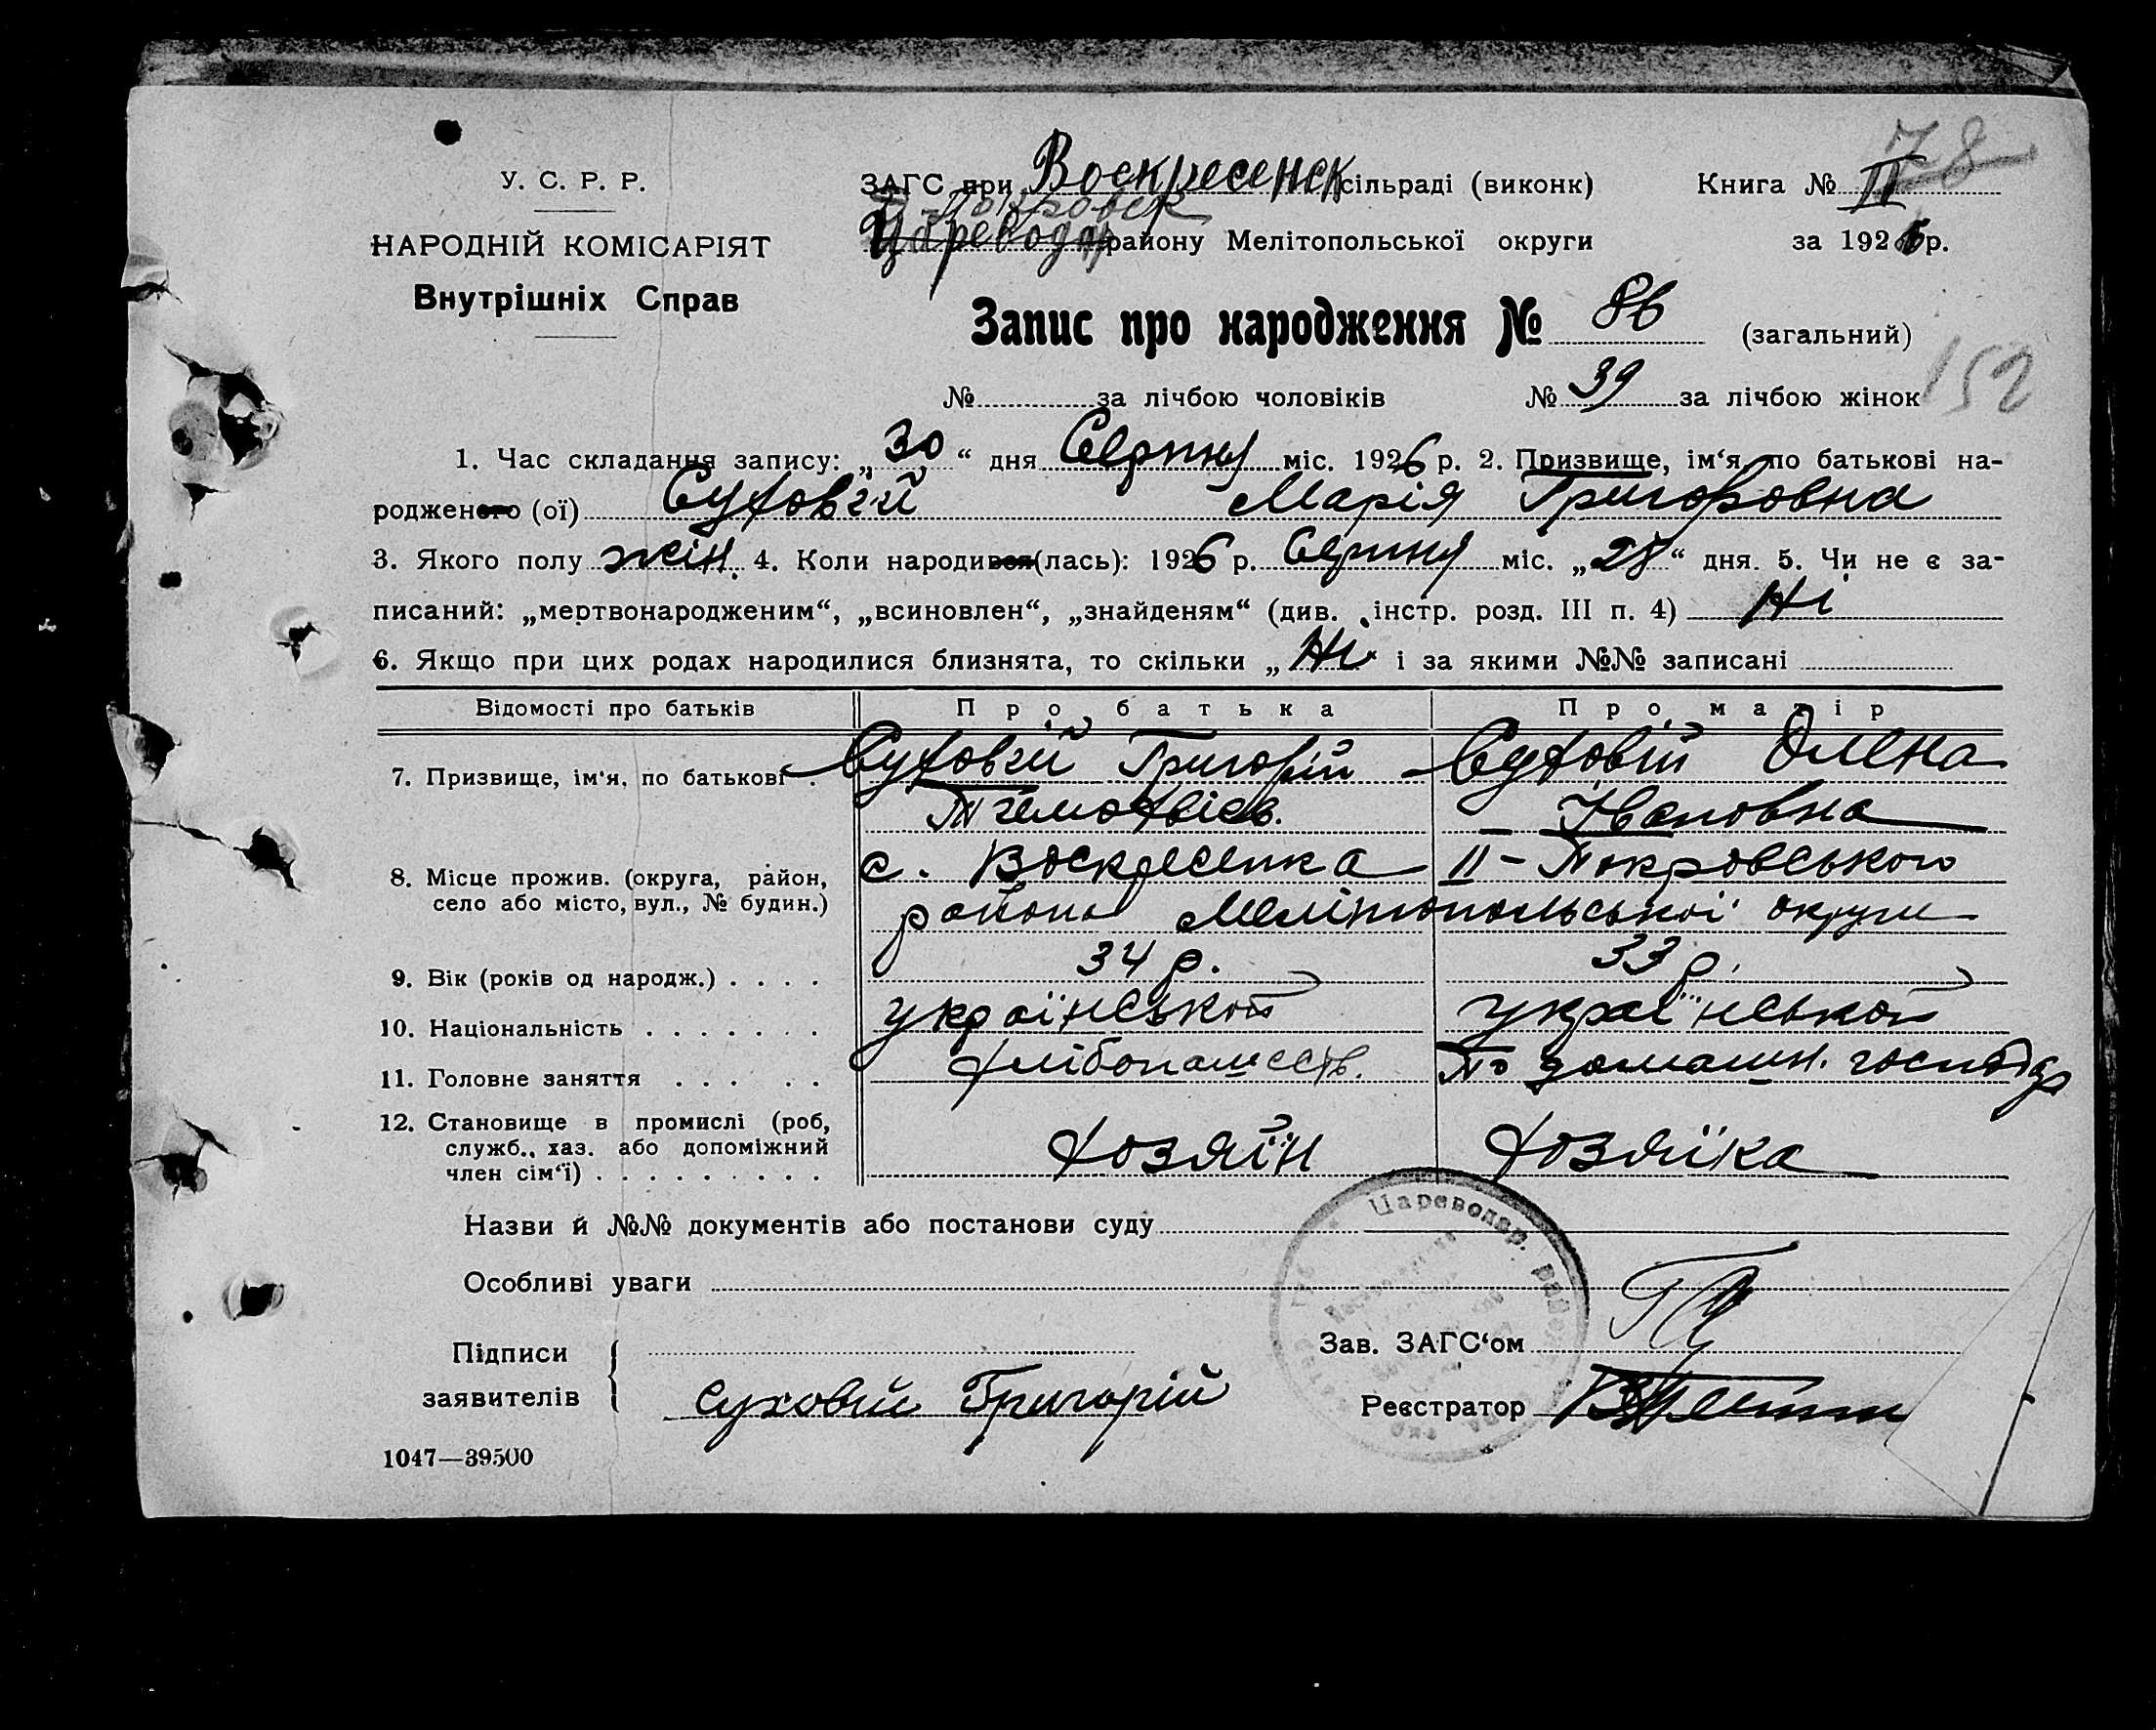 78
У. С. Р. Р.
НАРОДНІЙ КОМІСАРІЯТ
Внутрішніх Справ
ЗАГС при Воскресенск сільраді (виконк) Книга № II
II-Покровск
Цареводар району Мелітопольської округи за 1926 р.
Запис про народження № 86 (загальний)
152
№ за лічбою чоловіків № 39 за лічбою жінок
1. Час складання запису: „30“ дня Серпня міс. 1926 р. 2. Призвище, ім‘я, по батькові на-
родженого (ої) Суховій Марія Григоровна
3. Якого полу жін. 4. Коли народився (лась): 1926 р. Серпня міс. „28“ дня. 5. Чи не є за-
писаний: „мертвонародженим“, „всиновлен“, „знайденям“ (див. інстр. розд. III п. 4) Ні
6. Якщо при цих родах народилися близнята, то скільки „Ні і за якими №№ записані
Відомості про батьків Про батька Про матір
7. Призвище, ім‘я, по батькові . Суховій Григорій Суховій Олена
Тімофієв. Івановна
8. Місце прожив. (округа, район, с. Воскресенка II-Покровського
село або місто, вул., № будин.) району Мелітопольської округи
9. Вік (років од народж.) . . . . 34 р. 33 р.
10. Національність . . . . . . . української української
11. Головне заняття . . . . . хлібопашеств. По домашн. господар
12. Становище в промислі (роб,
служб., хаз. або допоміжний
член сім‘ї) . . . . . . . . . хозяїн хозяїка
Назви й №№ документів або постанови суду
Особливі уваги
Цареводар. район
Зав. ЗАГС‘ом
Підписи
заявителів Суховій Григорій
Реєстратор
1047—39500